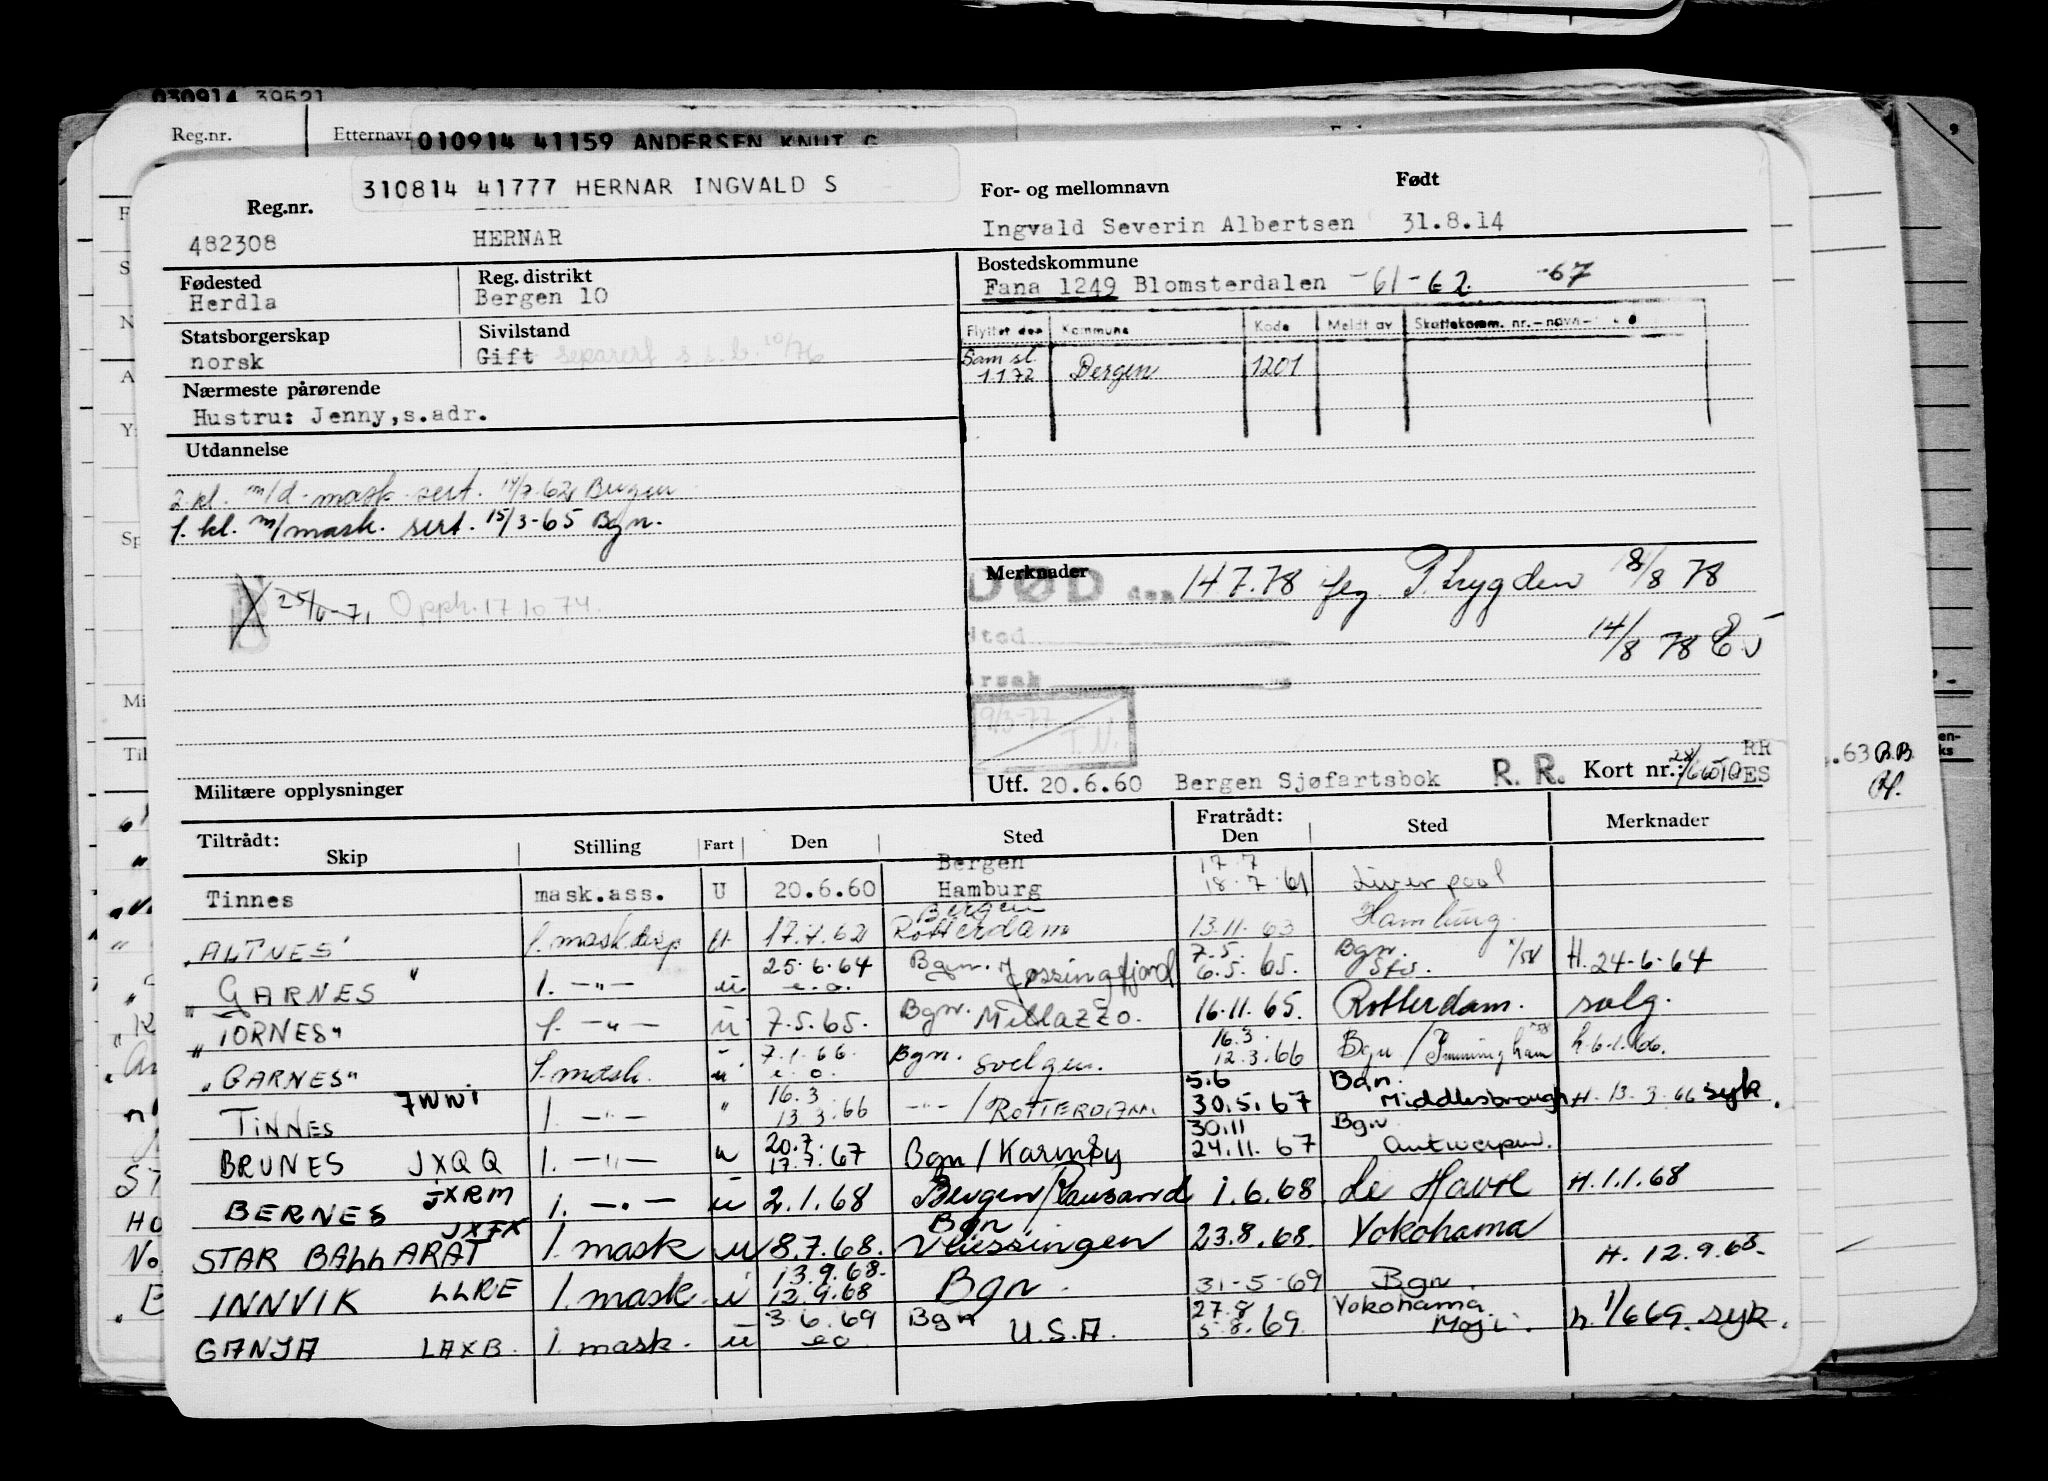 030914 39521
Reg.nr. Etternavn 010914 41159 ANDERSEN KNUT G
310814 41777 HERNAR INGVALD S
Reg.nr. For- og mellomnavn Født
482308 HERNAR Ingvald Severin Albertsen 31.8.14
Fødested Reg. distrikt Bostedskommune
Herdla Bergen 10 Fana 1249 Blomsterdalen -61-62 -67
Statsborgerskap Sivilstand Flyttet den Kommune Kode Meldt av Skattekomm. nr.-navn-
norsk Gift separert s.s.b. 10/76 Sam st. 1172 Bergen 1201
Nærmeste pårørende
Hustru: Jenny,s.adr.
Utdannelse
2. kl. m/d-mask. sert. 14/7-62 Bergen
1. kl. m/mask. sert. 15/3-65 Bgn.
Merknader
DØD den 14 7.78 flg. T.trygden 18/8 78
25/6-71 Opph. 17 10 74.
Sted 14/8 78
Årsak
9/3-77 T.N.
Militære opplysninger Utf. 20.6.60 Bergen Sjøfartsbok R. R. Kort nr.: RR
ES
Tiltrådt: Skip Stilling Fart Den Sted Fratrådt: Den Sted Merknader
Tinnes mask.ass. U 20.6.60 Bergen Hamburg 17.7 18.7.61 Liverpool
"ALTNES" 1. mask.disp u 17.7.62 Bergen Rotterdam 13.11.63 Hamburg.
"GARNES" 1. -"- u 25.6.64 e.o. Bgn. Jøssingfjord 7.5. 6.5.65. Bgn. Sfs. H. 24-6-64
"TORNES" 1. -"- u 7.5.65. Bgn. Milazzo. 16.11.65. Rotterdam. solg.
"GARNES" 1. mask. u 7.1.66. e.o. Bgn. Svelgen. 16.3. 12.3.66 Bgn / Immingham h. 6.1.66.
TINNES JWWI 1. -"- " 16.3 13.3.66 -"- / ROTTERDAM. 5.6 30.5.67 Bgn. Middlesbrough H. 13.3.66 syk.
BRUNES JXQQ 1. -"- u 20.7. 17.7.67 Bgn / Karmøy 30.11 24.11.67 Bgn Antwerpen.
BERNES JXRM 1. -"- u 2.1.68 Bergen/Rausand 1.6.68 Le Havre H. 1.1.68
STAR BALLARAT JXFX 1. mask u 8.7.68. Bgn Vliessingen 23.8.68. Yokohama
INNVIK LLRE 1. mask. u 13.9.68. 12.9.68 Bgn. 31-5-69 Bgn. H. 12.9.68.
GANJA LAXB. 1. mask. u 3.6.69 eo Bgn U.S.A. 27.8 5.8.69 Yokohama. Moji. h. 1/6 69. syk.